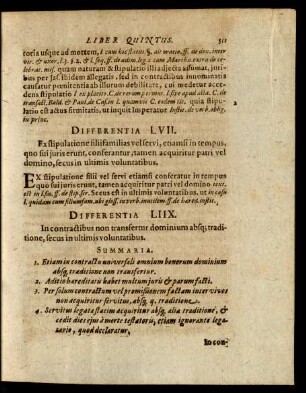 LIBER QUINTUS. 511
toria usque ad mortem, l. cum hic status §. ait oratio, ff. de don. inter
vir. & uxor, l. 3. §. 2. & l. seq. ff. de adim. leg. c. cum Martha. extra de ce
lebrat. miss. quam naturam & stipulatio illi adjecta assumat, juri
bus per Jas. ibidem allegatis, sed in contractibus innominatis
causatur pœnitentia ab illorum debilitate, cui medetur acce
dens stipulatio ut ex placito. C. de rerum permut.
transact. Bald. & Paul. de Castr. in l. quamvis C. eodem tit. quia stipu-
latio est actus firmitatis, ut inquit Imperator Instit. de verb. oblig.
in princ.
DIFFERENTIA LVII.
Ex stipulatione filiifamilias vel servi, etiamsi in tempus,
quo sui juris erunt, conferantur, tamen acquiritur patri vel
domino, secus in ultimis voluntatibus.
EX stipulatione filii vel servi etiamsi conferatur in tempus
quo sui juris erunt, tamen acquiritur patri vel domino text.
Secus est in ultimis voluntatibus, ut in casu
l. quidam cum filiumfam. ubi gloss. in verb. mutitem ff. de hæred. instit.
DIFFERENTIA LIIX.
In contractibus non transfertur dominium absq; tradi-
tione, secus in ultimis voluntatibus.
SUMMARIA.
1. Etiam in contractu universali omnium bonorum dominium
absq; traditione non transfertur.
2. Aditio hæreditatis habet multum juris & parum facti.
3. Per solum contractum vel promissionem factam inter vivos
non acquiritur servitus, absq; q. traditione.
4. Servitus legata statim acquiritur absq; alia traditione, &
cedit dies ejus à morte testatoris, etiam ignorante lega-
tario, quod declaratur.
IO con-